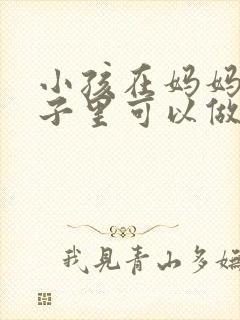 小孩在妈妈
子里可以做
我見青山多嫵